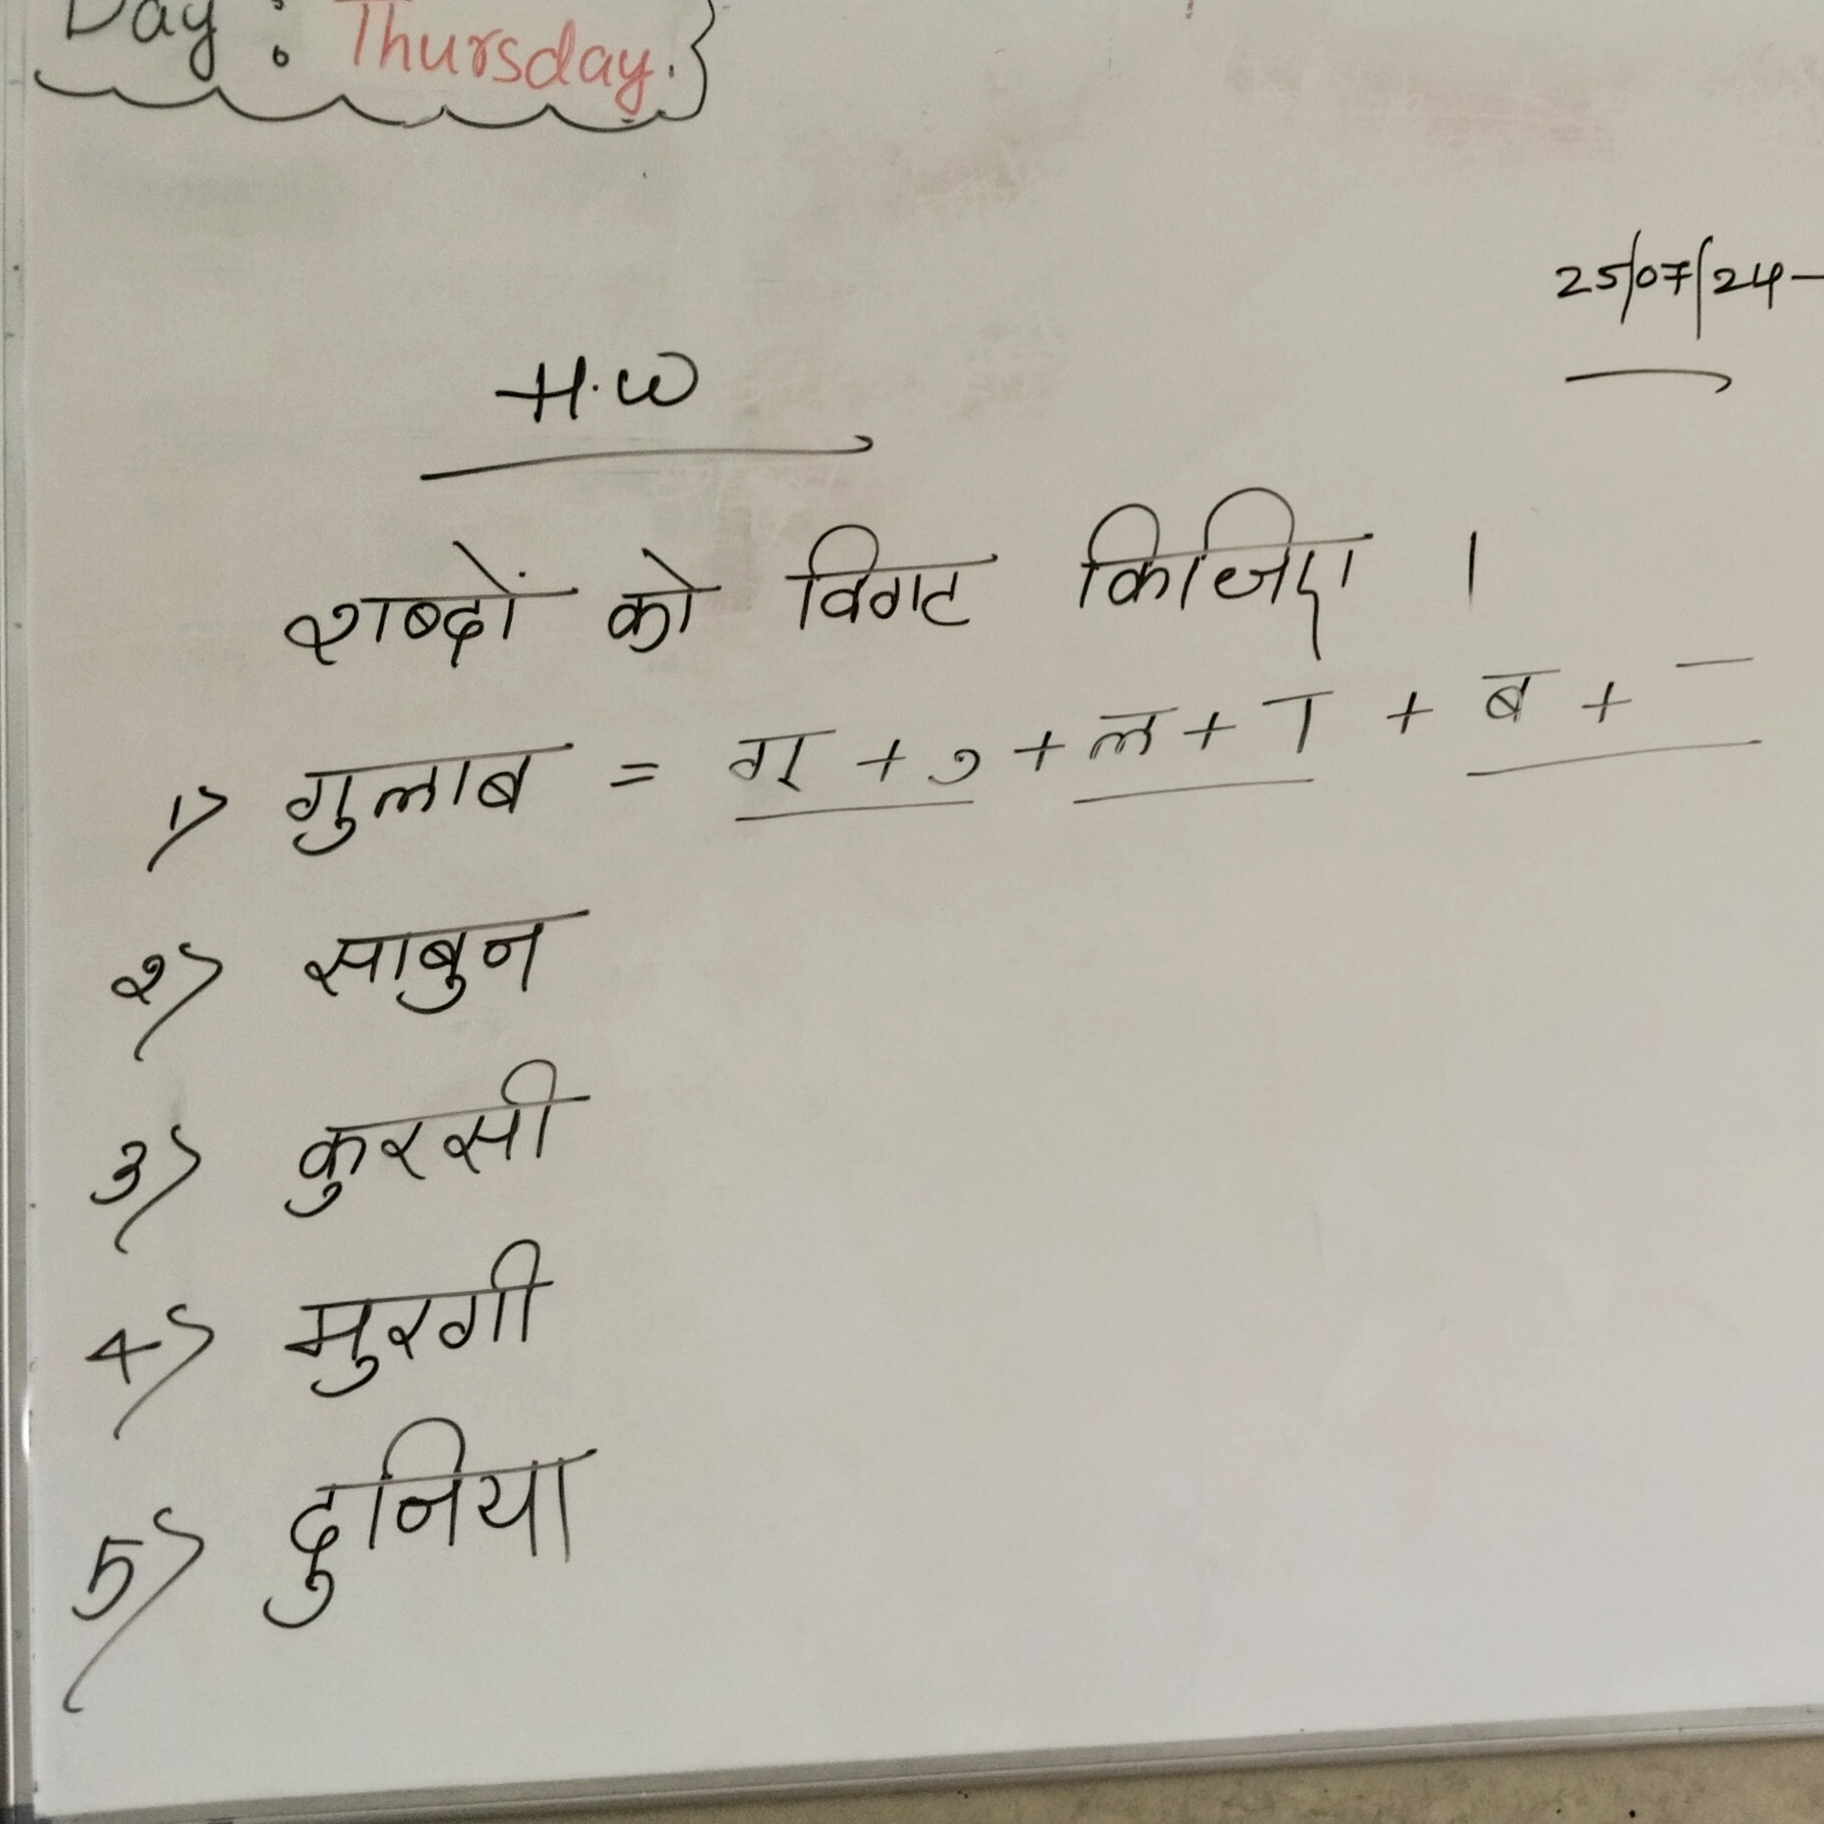 Day : Thursday.
25/07/24
H.W
शब्दों को विगट किजिए ।
1) गुलाब = ग + ु + ल + ा + ब + –
२) साबुन
3) कुरसी
4) मुरगी
5) दुनिया